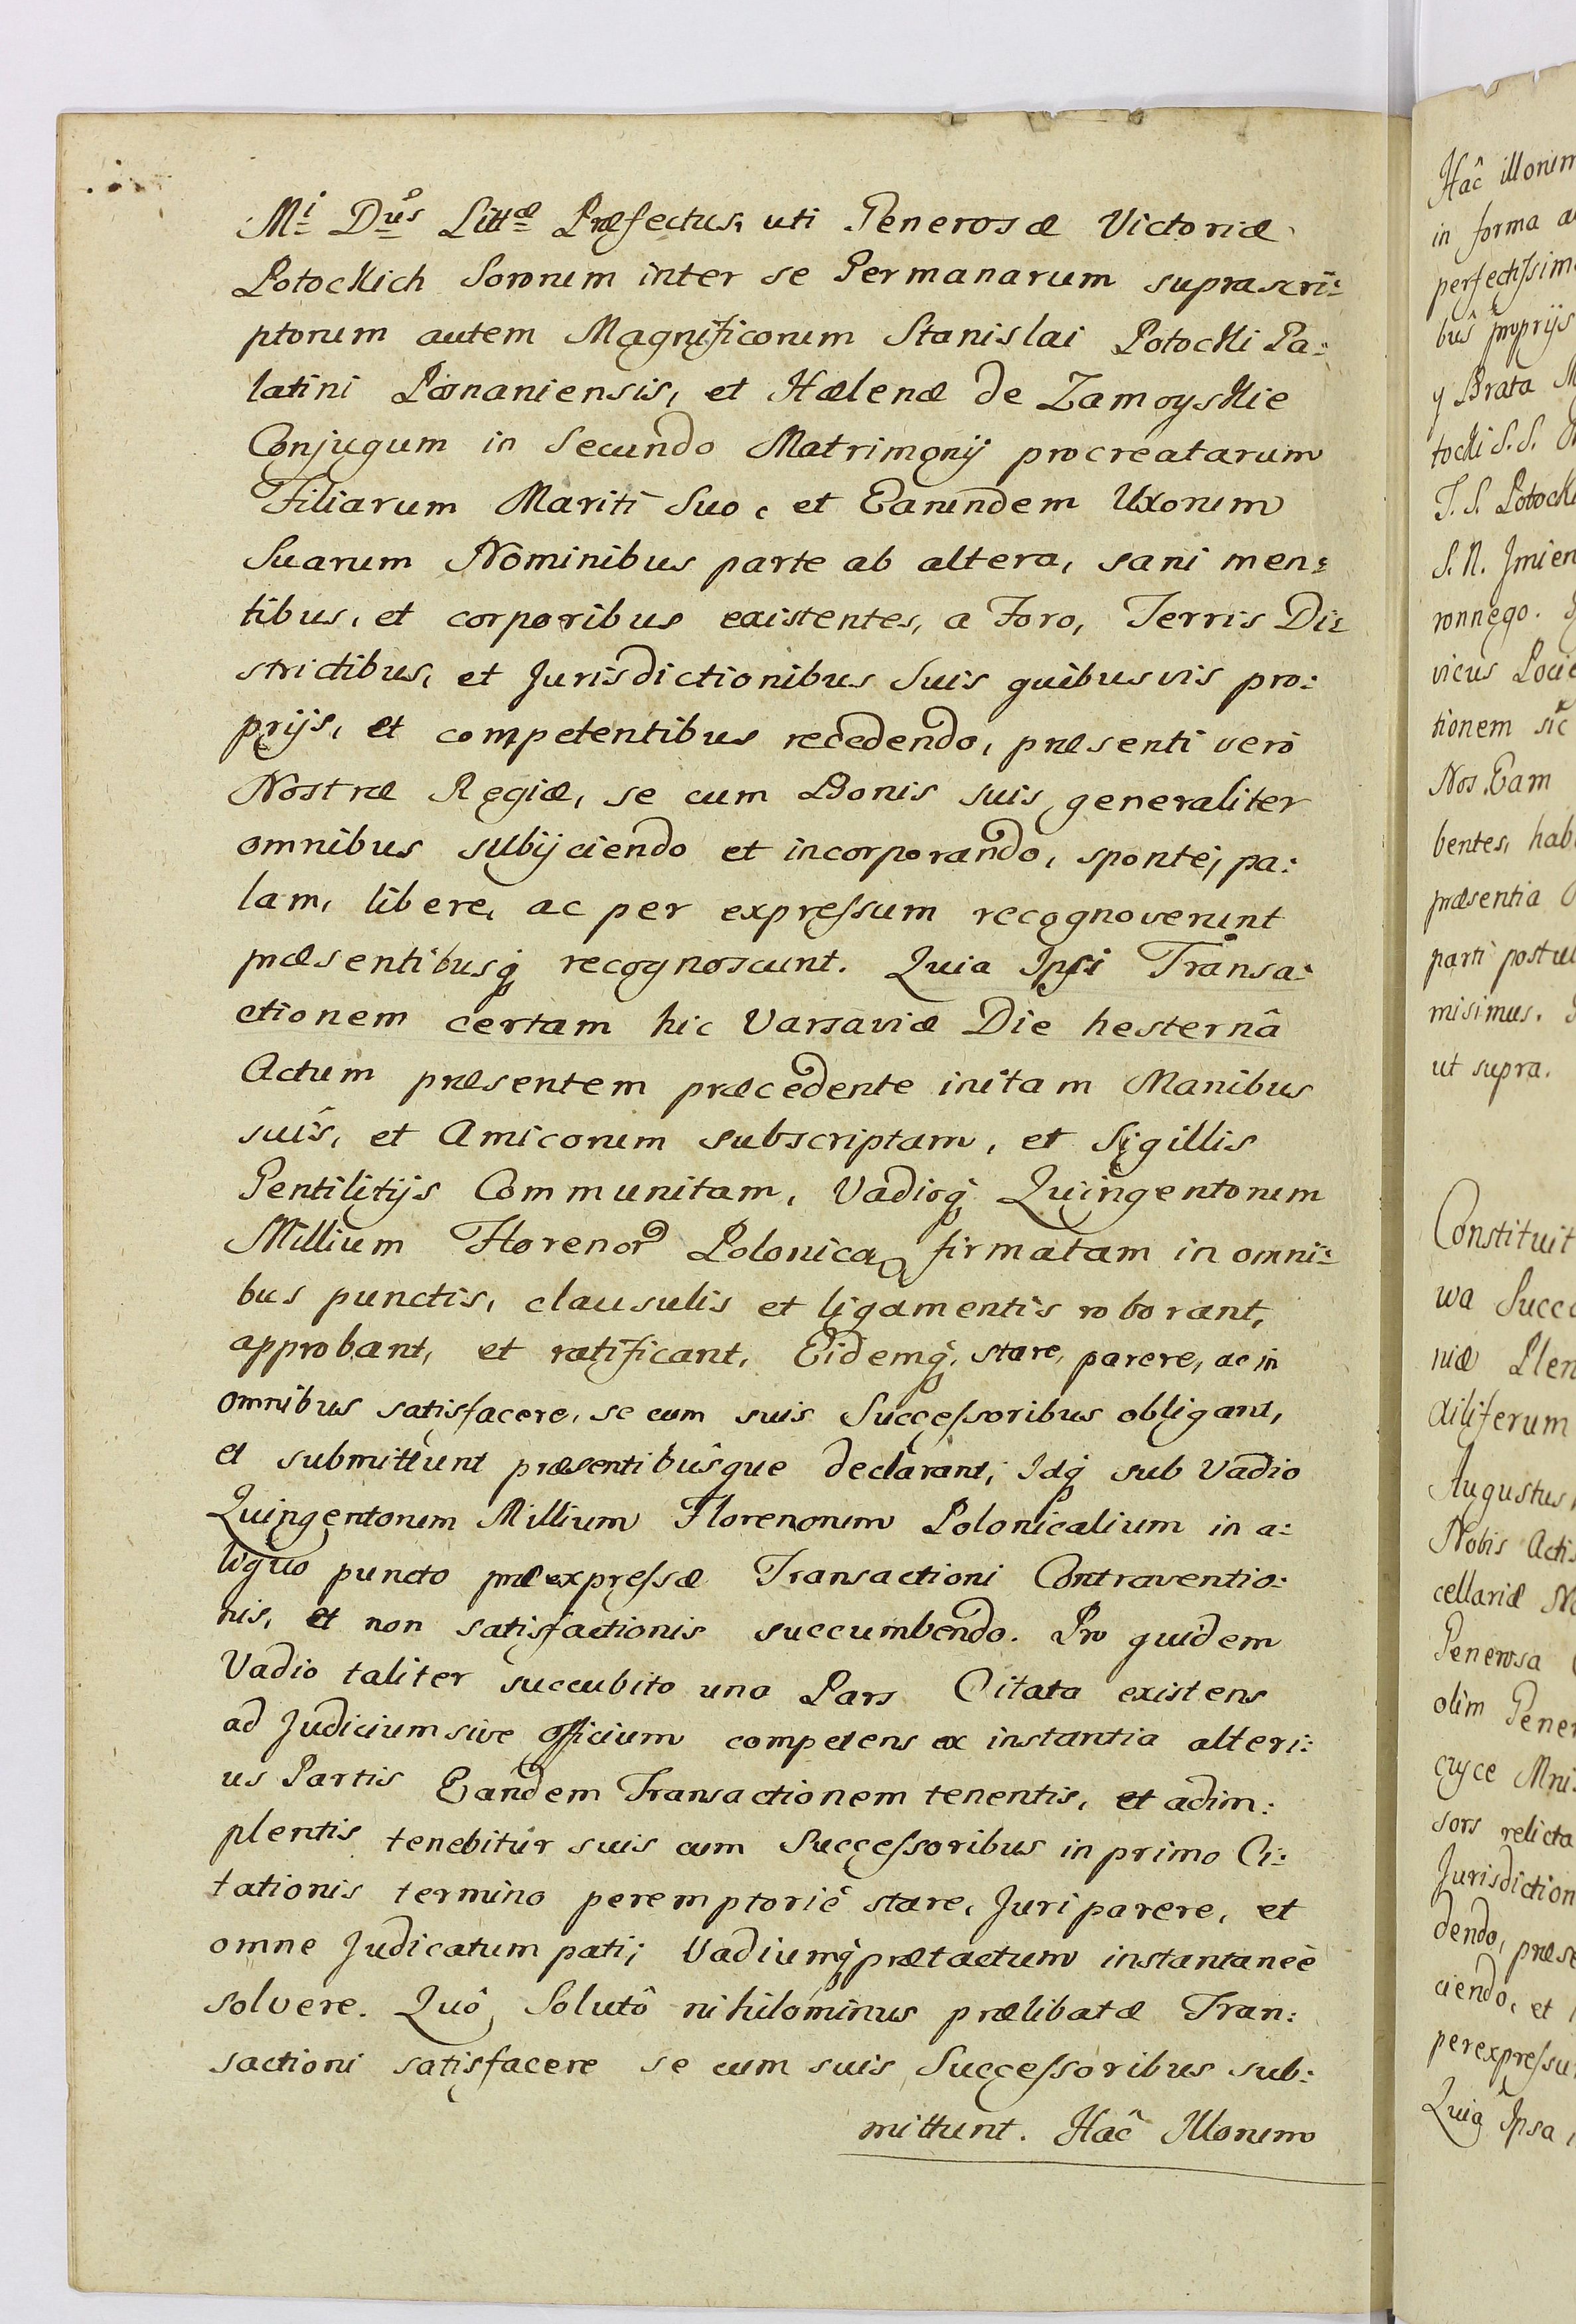 Mi Dus Littæ Præfectus, uti Generosæ Victoriæ
Potockich Sororum inter se Germanarum suprascri:
ptorum autem Magnificorum Stanislai Potocki Pa:
latini Posnaniensis, et Hælenæ de Zamoyskie
Conjugum in Secundo Matrimonij procreatarum
Filiarum Mariti Suo, et Earundem Uxorum
Suarum Nominibus parte ab altera, sani men:
tibus, et corporibus existentes, a Foro, Terris Di:
strictibus, et Jurisdictionibus Suis quibusvis pro:
prijs, et competentibus recedendo, præsenti verò
Nostræ Regiæ, se cum Bonis suis generaliter
omnibus subijciendo et incorporando, sponte, pa:
lam, libere, ac per expressum recognoverunt
præsentibusq recognoscunt. Quia Ipsi Transa:
ctionem certam hic Varsaviæ Die hesternâ
Actum præsentem præcedente initam Manibus
suis, et Amicorum subscriptam, et Sigillis
Gentilitijs Communitam, Vadioq Quingentorum
Millium Floreno\r Polonica firmatam in omni:
bus punctis, clausulis et ligamentis roborant,
approbant, et ratificant, Eidemq, stare, parere, ac in
omnibus satisfacere, se cum suis Successoribus obligant,
et submittunt præsentibusque declarant, Idq sub Vadio
Quingentorum Millium Florenorum Polonicalium in a:
liquo puncto præexpressæ Transactioni Contraventio:
nis, et non satisfactionis succumbendo. Pro quidem
Vadio taliter succubito una Pars Citata existens
ad Judicium sive Officium competens ex instantia alteri:
us Partis Eandem Transactionem tenentis, et adim:
plentis tenebitur suis cum Successoribus in primo Ci:
tationis termino peremptoriè stare, Juri parere, et
omne Judicatum pati; Vadiumq prætactum instantaneè
solvere. Quô Solutô nihilominus prælibatæ Tran:
sactioni satisfacere se cum suis Successoribus sub:
mittunt. Hâc Illorum
Hâc illorum
in forma a
perfectissim
bus proprijs
y Brata M
tocki S. S.
J. S. Potock
S. N. Jmien
ronnego.
vicus Pocie
tionem sic
Nos Eam
bentes, hab
præsentia
parti postul
misimus.
ut supra.
Constituit
wa Succ
niæ Plen
xiliferum
Augustus
Nobis Actis
cellariæ No
Generosa
olim Gener
cyce Mni
sors relicta
Jurisdiction
dendo, præse
ciendo, et
perexpressu
Quia Ipsa